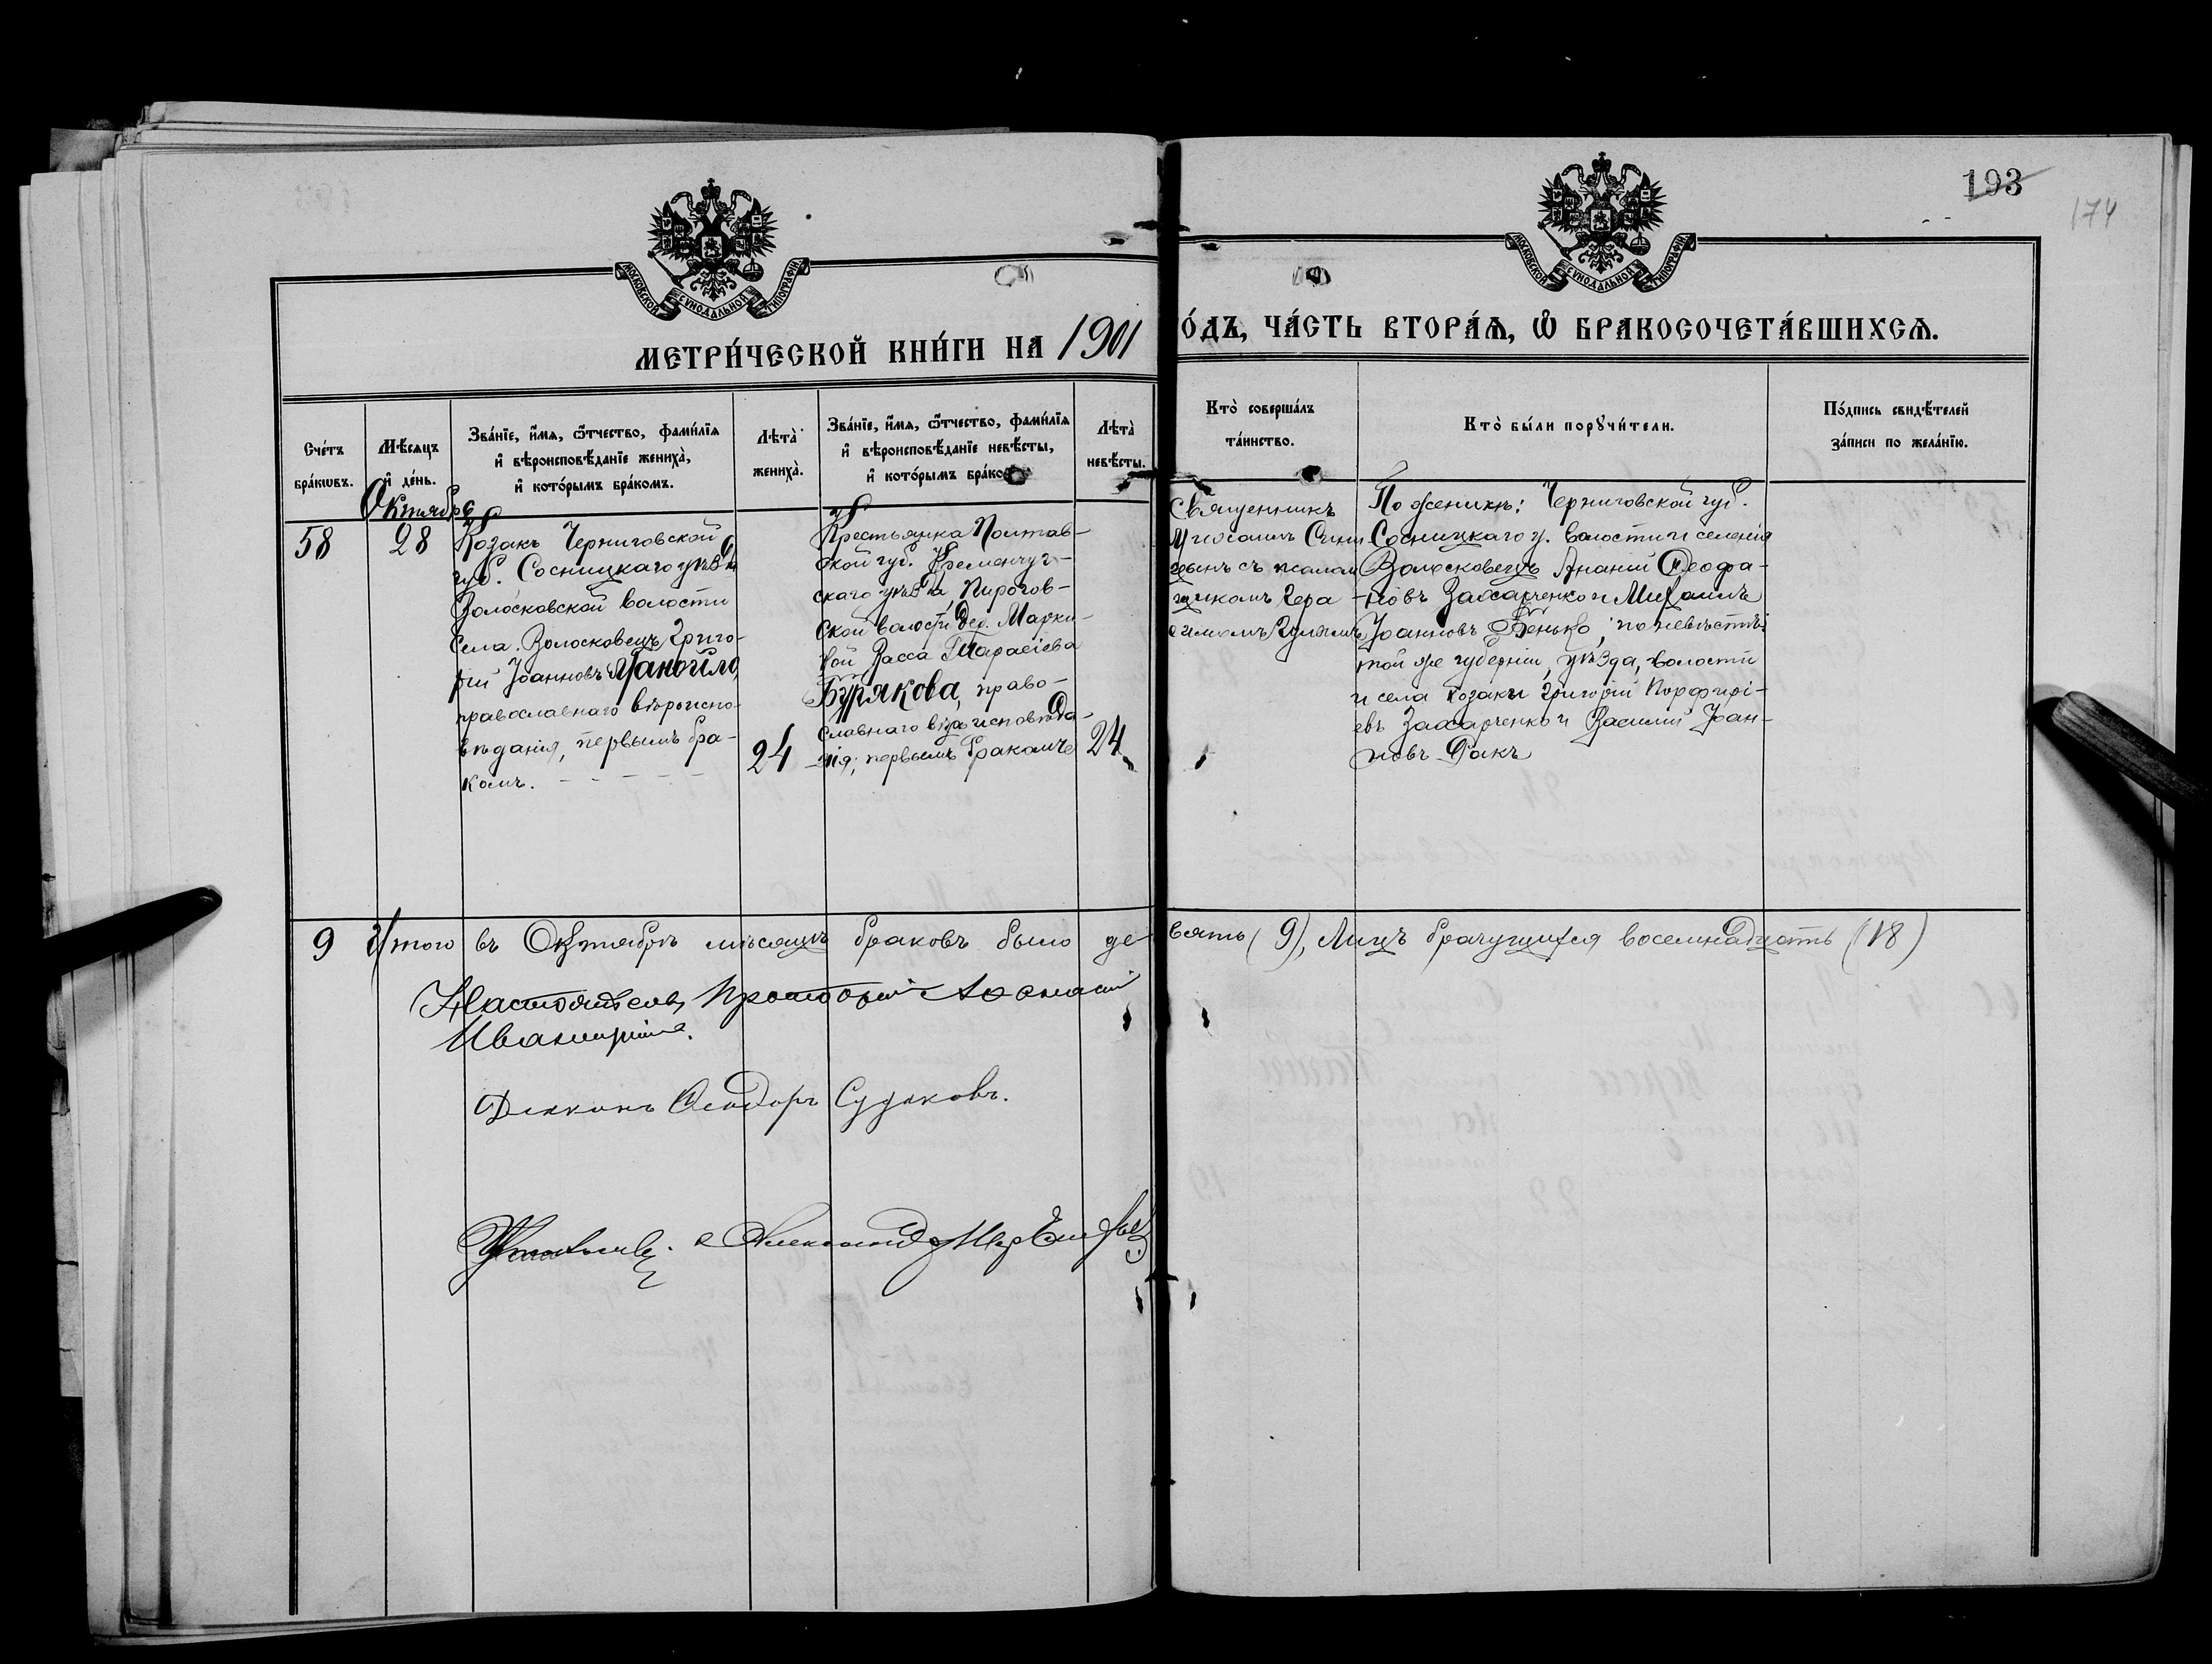 193
174
МОСКОВСКОЙ СѴНОДАЛЬНОЙ ТИПОГРАФІИ.
МОСКОВСКОЙ СѴНОДАЛЬНОЙ ТИПОГРАФІИ.
МЕТРИ́ЧЕСКОЙ КНИ́ГИ НА 1901
О́ДЪ, ЧА́СТЬ ВТОРА́Ѧ, Ѡ҆ БРАКОСОЧЕТА́ВШИХСѦ.
Сче́тъ бра́кωвъ.
Мѣ́сѧцъ и҆ де́нь.
Зва́нїе, и҆́мѧ, ѻ҆́тчество, фами́лїѧ
и҆ вѣроисповѣ́данїе жениха̀,
и҆ кото́рымъ бра́комъ.
Лѣта̀ жениха̀.
Зва́нїе, и҆́мѧ, ѻ҆́тчество, фами́лїѧ
и҆ вѣроисповѣ́данїе невѣ́сты,
и҆ кото́рымъ бра́ко
Лѣта̀ невѣ́сты.
Кто̀ соверша́лъ
та́инство.
Кто̀ бы́ли порꙋчи́тели.
По́дпись свидѣ́телей
за́писи по жела́нїю.
Октябрь
58
28
Козакъ Черниговской
губ. Сосницкаго уѣзда
Волосковской волости
села Волосковецъ Григо-
рій Іоанновъ
православнаго вѣроиспо-
вѣданія, первымъ бра-
комъ.
24
Крестьянка Полтав-
ской губ. Кременчуг-
скаго уѣзда, Пирогов-
ской волости, дер. Марки-
Васса Тарасіева
Бурякова, право-
славнаго вѣроисповѣда-
нія, первымъ бракомъ
24
Священникъ
съ псалом
щикомъ Гера
По женихѣ: Черниговской губ.
Сосницкаго у. волости и селенія
Волосковецъ Ананій Феофа-
новъ Захарченко и Михаилъ
Іоанновъ Бенько; по невѣстѣ:
той же губерніи, уѣзда, волости
и села козаки Григорій Порфирі-
евъ Захарченко и Василій Іоан-
новъ
9 Итого въ Октябрѣ мѣсяцѣ браковъ было де
вять (9), Лицъ брачущихся восемнадцать (18)
Настоятель, Протоіерей Аѳанасій
Діаконъ Ѳеодоръ Судаковъ.